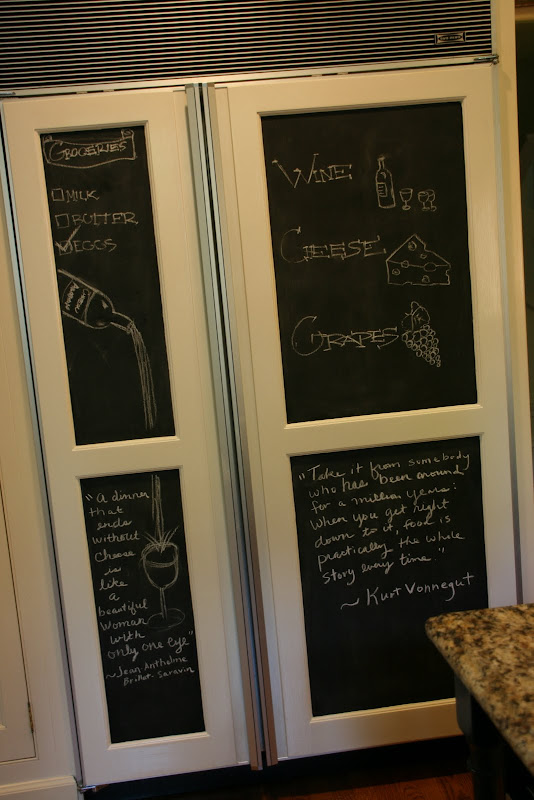 GROCERIES
MILK
BUTTER
EGGS
WINE
CHEESE
GRAPES
"A dinner
that
ends
without
cheese
is
like
a
beautiful
woman
with
only one eye"
~Jean Anthelme
Brillat-Savarin
"Take it from somebody
who has been around
for a million years:
When you get right
down to it, food is
practically the whole
story every time."
~ Kurt Vonnegut